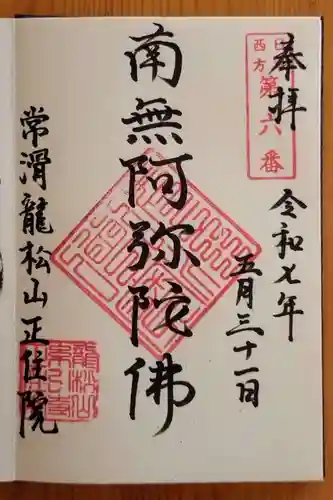 奉拝
西方
第六番
令和七年
五月三十一日
南無阿弥陀佛
常滑龍松山正住院